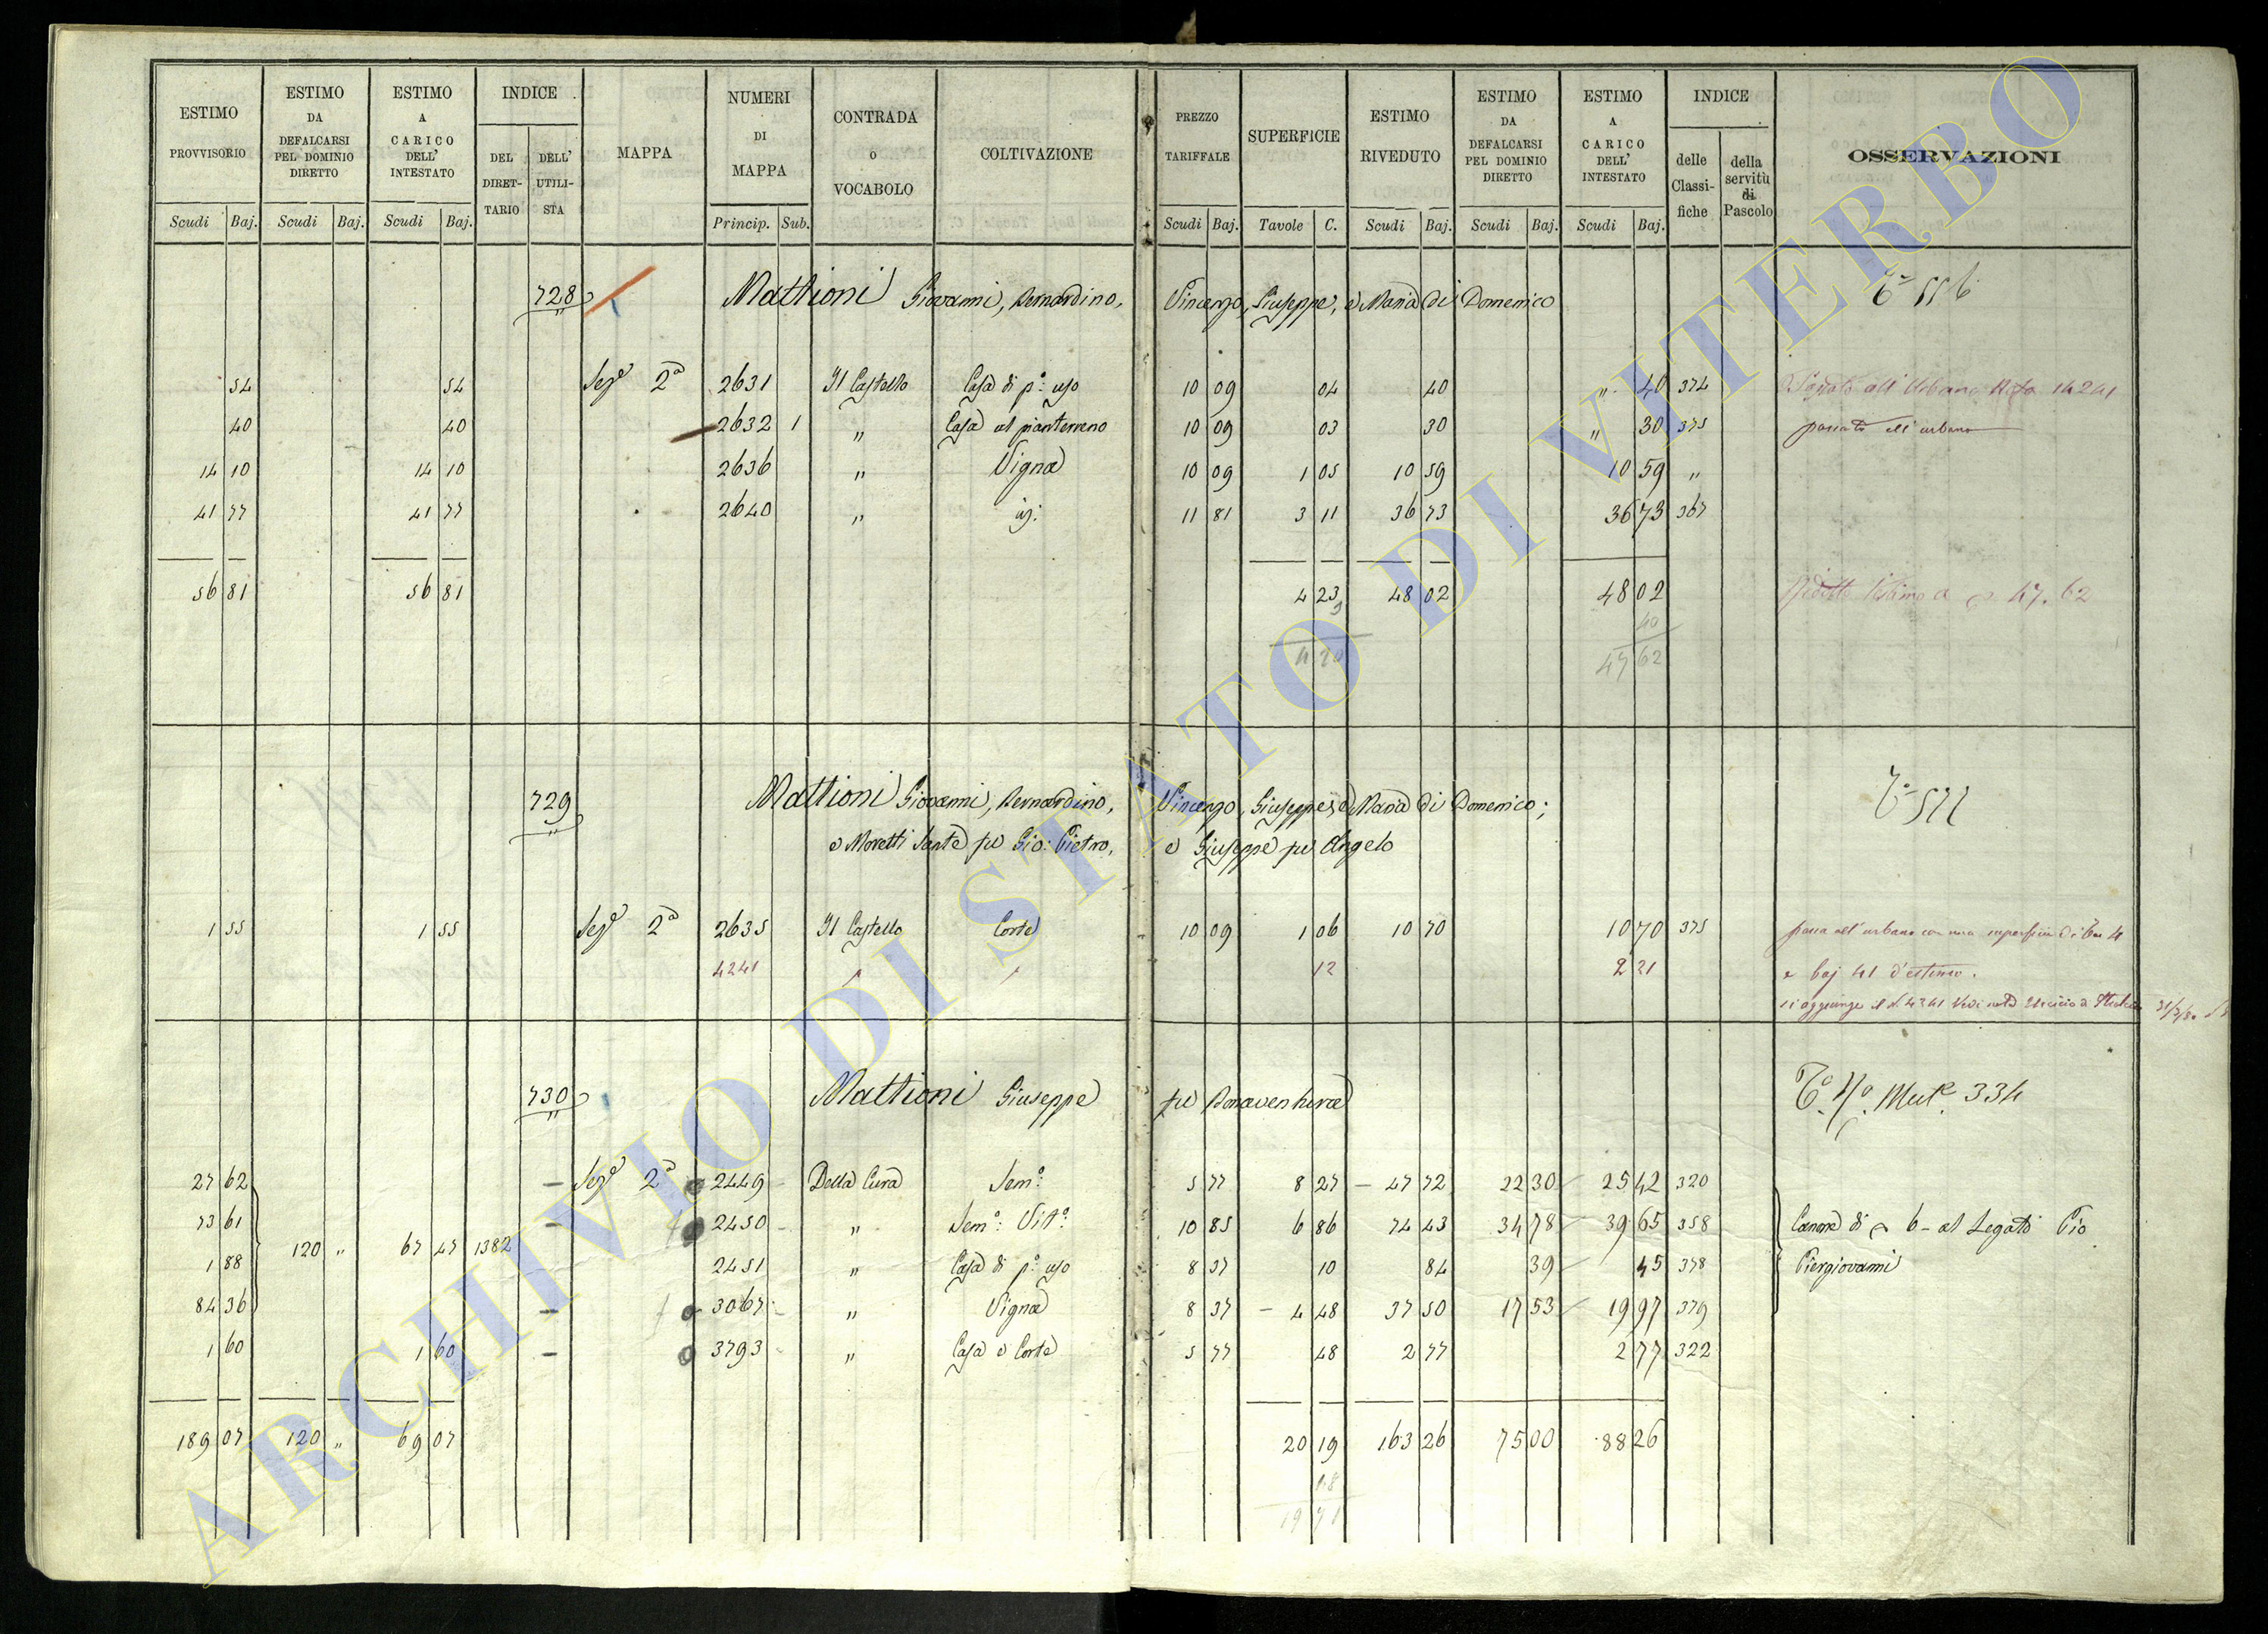 ESTIMO PROVVISORIO
ESTIMO DA DEFALCARSI PEL DOMINIO DIRETTO
ESTIMO A CARICO DELL' INTESTATO
INDICE
DEL DIRET- TARIO
DELL' UTILI- STA
MAPPA
NUMERI DI MAPPA
CONTRADA O VOCABOLO
COLTIVAZIONE
PREZZO TARIFFALE
SUPERFICIE
ESTIMO RIVEDUTO
ESTIMO DA DEFALCARSI PEL DOMINIO DIRETTO
ESTIMO A CARICO DELL' INTESTATO
INDICE
delle Classi- fiche
della servitù di Pascolo
OSSERVAZIONI
Scudi Baj. Scudi Baj. Scudi Baj. Princip. Sub. Scudi Baj. Tavole C. Scudi Baj. Scudi Baj. Scudi Baj.
728 Mattioni Giovanni, Bernardino, Vincenzo, Giuseppe, e Maria di Domenico
54 54 Sez.e 2a 2631 Il Castello Casa di p.o uso 10 09 04 40 " 40 374
40 40 2632 1 " Casa al pianterreno 10 09 03 30 " 30 375 passato all'urbano
14 10 14 10 2636 " Vigna 10 09 1 05 10 59 10 59 "
41 77 41 77 2640 " id: 11 81 3 11 36 73 36 73 367
56 81 56 81 4 23 48 02 48 02 Ridotto l'estimo a 47.62
40
47 62
729 Mattioni Giovanni, Bernardino, Vincenzo, Giuseppe, e Maria di Domenico;
e Moretti Sante fu Gio: Pietro, e Giuseppe fu Angelo
1 55 1 55 Sez.e 2a 2635 Il Castello Corte 10 09 1 06 10 70 10 70 375 passa all'urbano con una superficie di
4241 " " 12 2 21 e baj 41 d'estimo.
si aggiunge il N. 4241 Vedi
730 Mattioni Giuseppe fu Bonaventura
Mut.e 334
27 62 Sez.e 2a 2449 Della Cura Sem.o 5 77 8 27 47 72 22 30 25 42 320
73 61 2450 " Sem.o: Vit.o: 10 85 6 86 74 43 34 78 39 65 358 Canone di 6 - al Legato Pio
120 " 67 47 1382
1 88 2451 " Casa di p.o uso 8 37 10 84 39 45 378 Piergiovanni
84 36 3067 " Vigna 8 37 4 48 37 50 17 53 19 97 379
1 60 1 60 3793 " Casa e Corte 5 77 48 2 77 2 77 322
189 07 120 " 69 07 20 19 163 26 75 00 88 26
48
19 71
ARCHIVIO DI STATO DI VITERBO